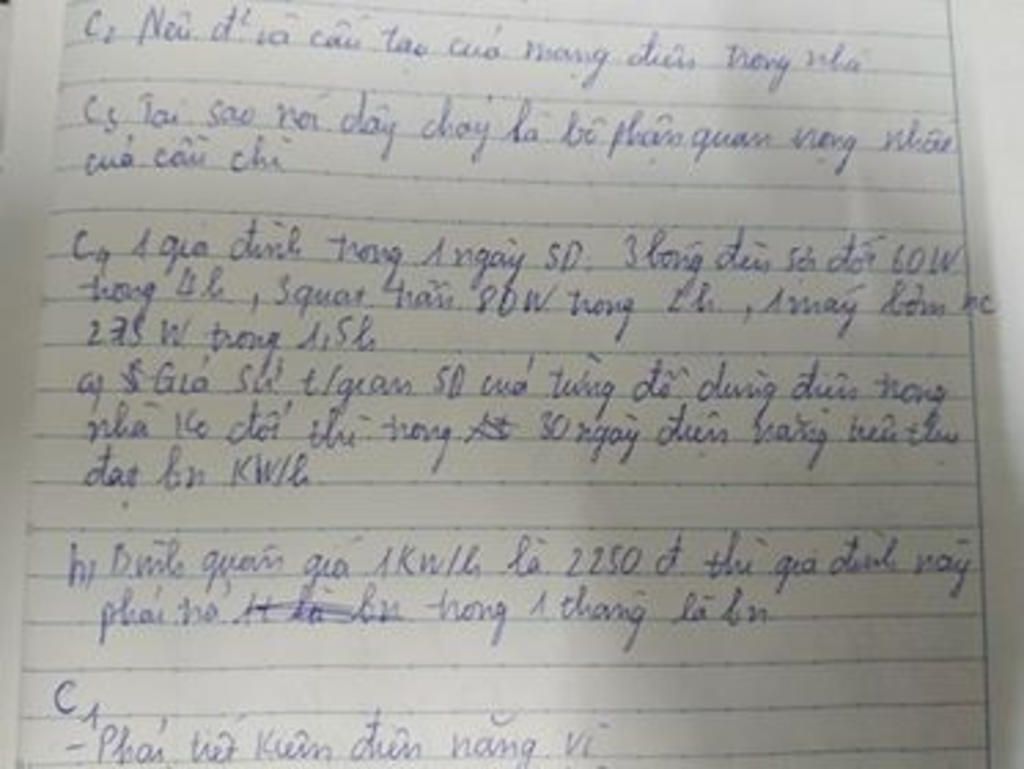 C2 Nêu đ² và cấu tạo của mạng điện trong nhà
C3 Tại sao nói dây chảy là bộ phận quan trọng nhất
của cầu chì
C4 1 gia đình trong 1 ngày SD. 3 bóng đèn sợi đốt 60W
trong 4h, 3 quạt trần 80W trong 2h, 1 máy bơm nc
275 W trong 1,5h
a) Giả sử t/gian SD của từng đồ dùng điện trong
nhà ko đổi thì trong 30 ngày điện năng tiêu thụ
đạt bn KW/h
b) Bình quân giá 1KW/h là 2250 đ thì gia đình này
phải trả trong 1 tháng là bn
C1
- Phải tiết kiệm điện năng vì